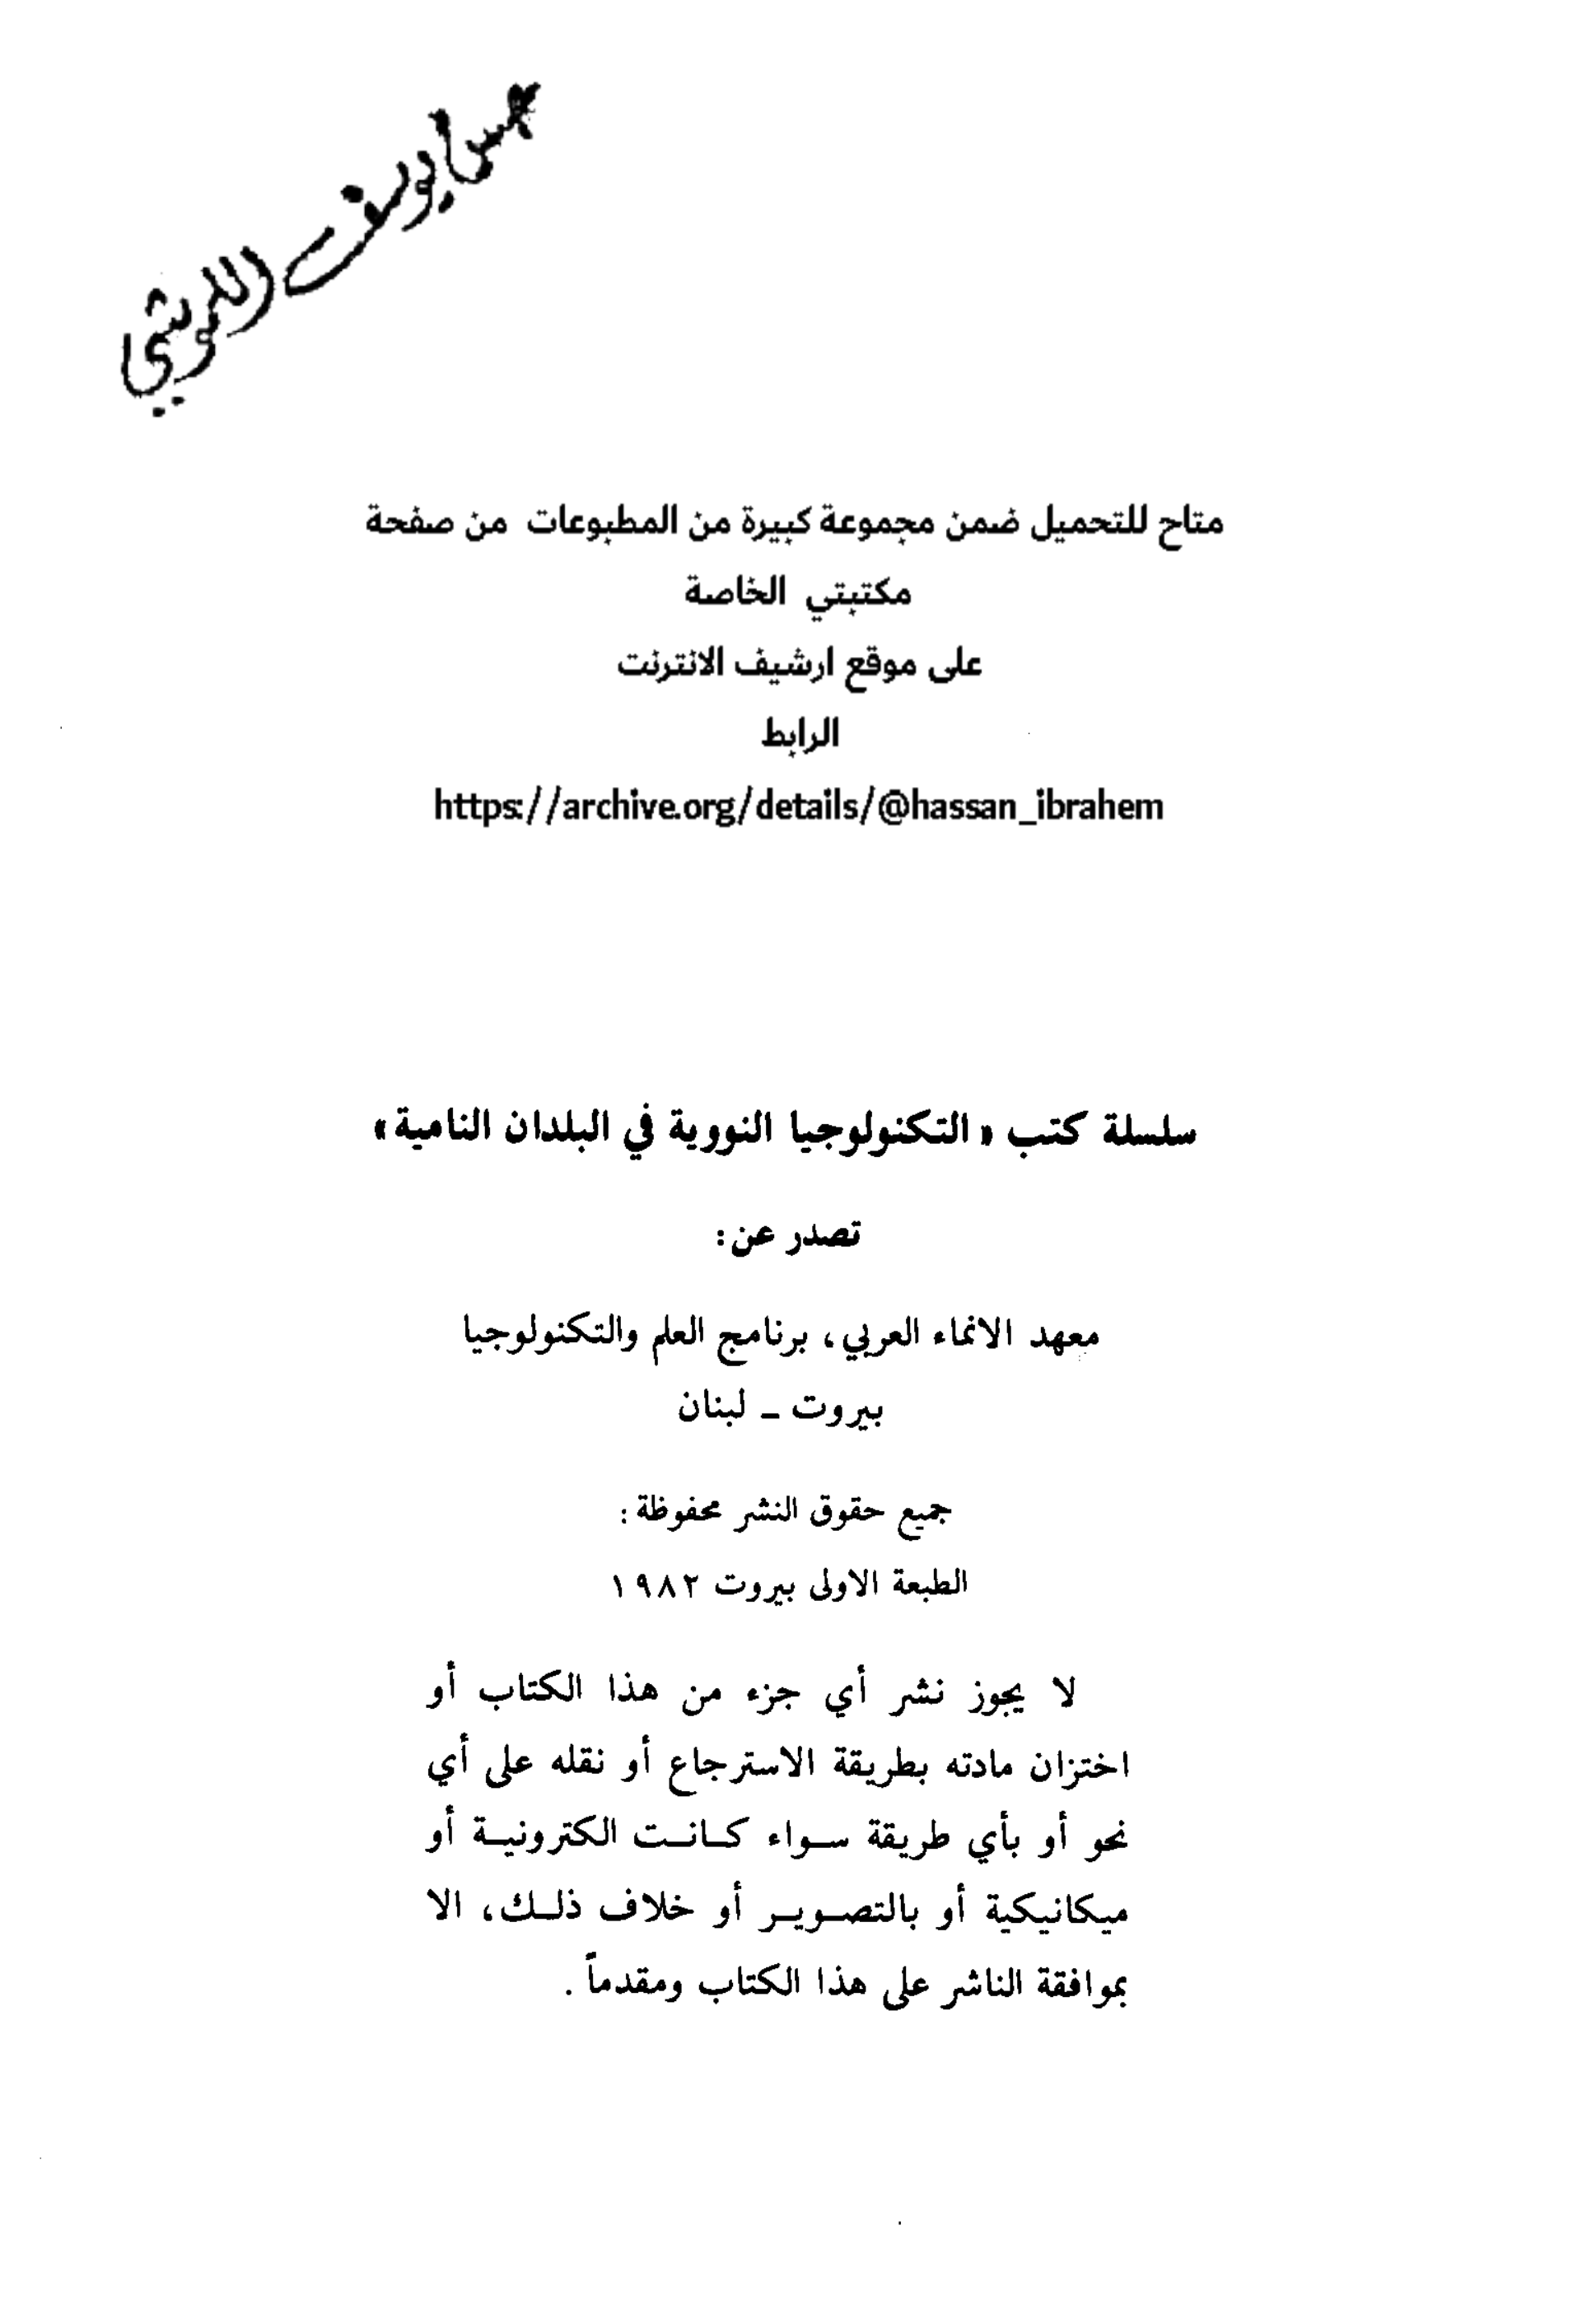 متاح للتحميل ضمن مجموعة كبيرة من المطبوعات من صفحة
مكتبتي الخاصة
على موقع ارشيف الانترنت
الرابط
https://archive.org/details/@hassan_ibrahem
سلسلة كتب «التكنولوجيا النووية في البلدان النامية»
تصدر عن:
معهد الانماء العربي، برنامج العلم والتكنولوجيا
بيروت ـ لبنان
جميع حقوق النشر محفوظة:
الطبعة الاولى بيروت ١٩٨٢
لا يجوز نشر أي جزء من هذا الكتاب أو
اختزان مادته بطريقة الاسترجاع أو نقله على أي
نحو أو بأي طريقة سـواء كـانـت الكترونيـة أو
ميكانيكية أو بالتصـويـر أو خلاف ذلـك، الا
بموافقة الناشر على هذا الكتاب ومقدماً.